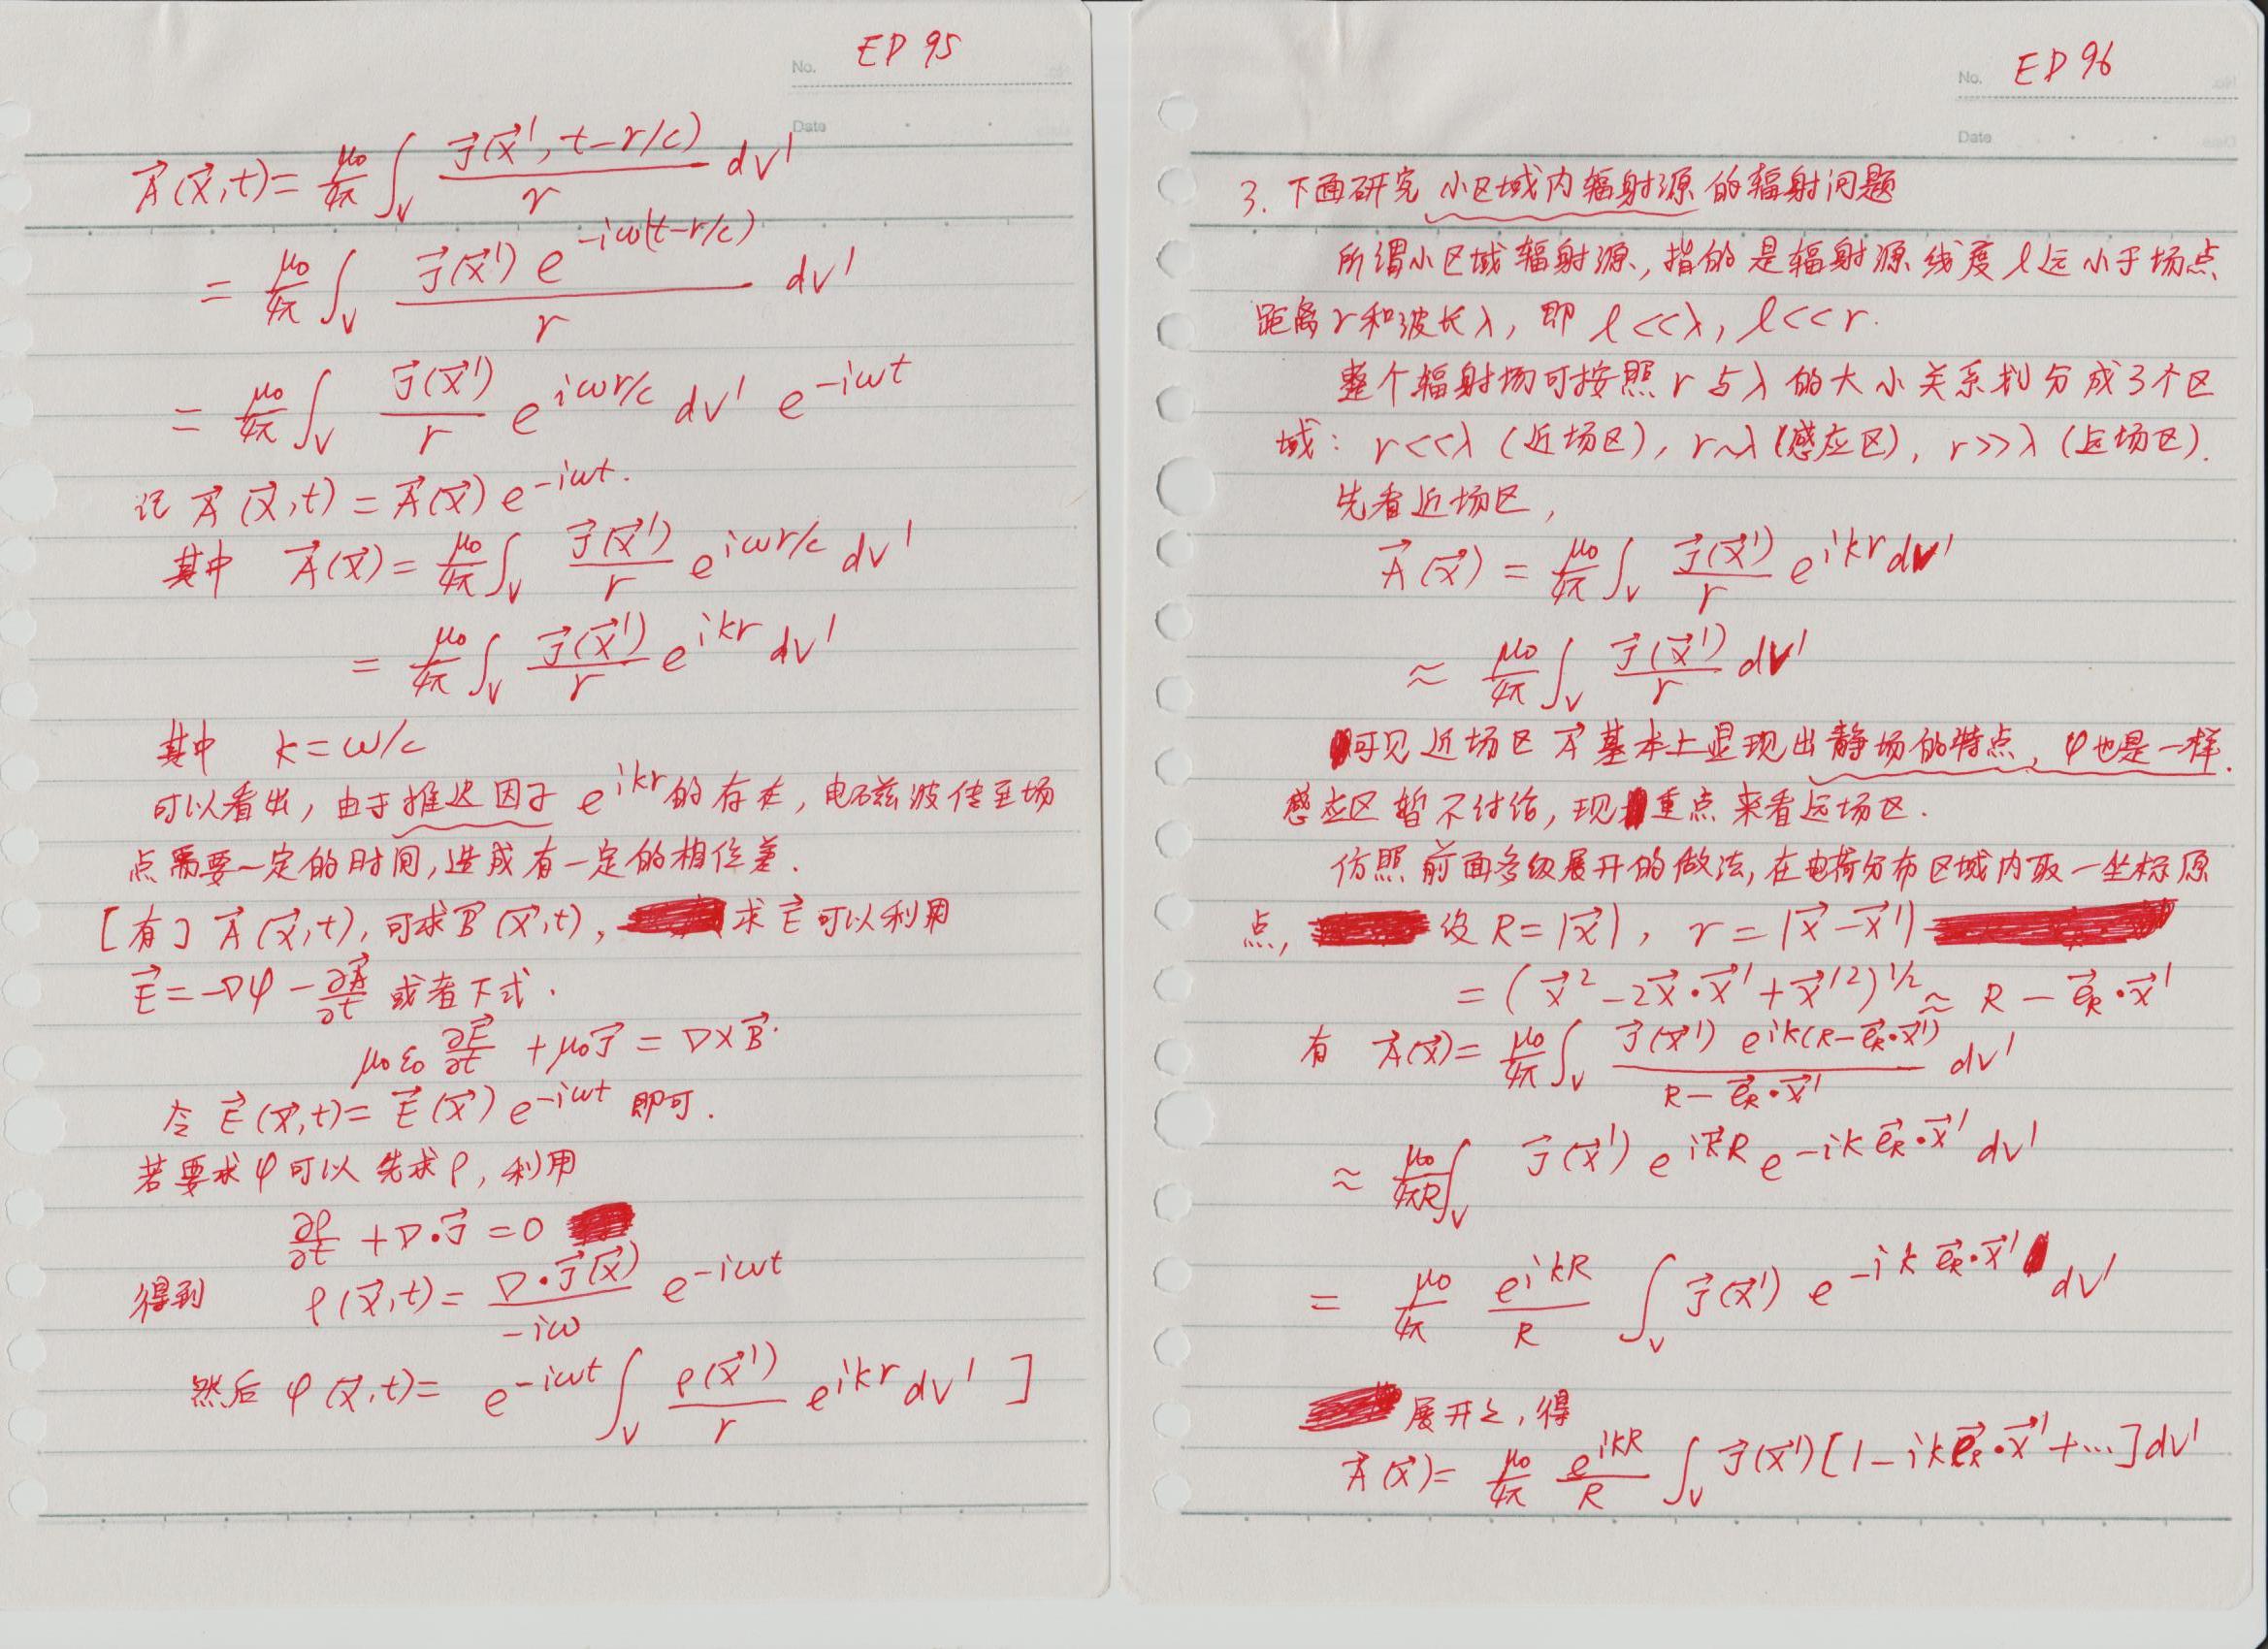 No. EP 95
Date
$\vec{A}(\vec{x},t)=\frac{\mu_0}{4\pi}\int_V \frac{\vec{J}(\vec{x}',t-r/c)}{r}dV'$
$=\frac{\mu_0}{4\pi}\int_V \frac{\vec{J}(\vec{x}')e^{-i\omega(t-r/c)}}{r}dV'$
$=\frac{\mu_0}{4\pi}\int_V \frac{\vec{J}(\vec{x}')}{r}e^{i\omega r/c}dV' e^{-i\omega t}$
记 $\vec{A}(\vec{x},t)=\vec{A}(\vec{x})e^{-i\omega t}$.
其中 $\vec{A}(\vec{x})=\frac{\mu_0}{4\pi}\int_V \frac{\vec{J}(\vec{x}')}{r}e^{i\omega r/c}dV'$
$=\frac{\mu_0}{4\pi}\int_V \frac{\vec{J}(\vec{x}')}{r}e^{ikr}dV'$
其中 $k=\omega/c$
可以看出,由于推迟因子 $e^{ikr}$ 的存在,电磁波传至场
点需要一定的时间,造成有一定的相位差.
[有了 $\vec{A}(\vec{x},t)$,可求 $\vec{B}(\vec{x},t)$, 求 $\vec{E}$ 可以利用
$\vec{E}=-\nabla\varphi-\frac{\partial\vec{A}}{\partial t}$ 或者下式.
$\mu_0\varepsilon_0\frac{\partial\vec{E}}{\partial t}+\mu_0\vec{J}=\nabla\times\vec{B}$.
令 $\vec{E}(\vec{x},t)=\vec{E}(\vec{x})e^{-i\omega t}$ 即可.
若要求 $\varphi$ 可以先求 $\rho$, 利用
$\frac{\partial\rho}{\partial t}+\nabla\cdot\vec{J}=0$
得到 $\rho(\vec{x},t)=\frac{\nabla\cdot\vec{J}(\vec{x})}{-i\omega}e^{-i\omega t}$
然后 $\varphi(\vec{x},t)=e^{-i\omega t}\int_V \frac{\rho(\vec{x}')}{r}e^{ikr}dV'$ ]
No. EP 96
Date
3. 下面研究小区域内辐射源的辐射问题
所谓小区域辐射源,指的是辐射源线度 $l$ 远小于场点
距离 $r$ 和波长 $\lambda$, 即 $l<<\lambda$, $l<<r$.
整个辐射场可按照 $r$ 与 $\lambda$ 的大小关系划分成3个区
域: $r<<\lambda$ (近场区), $r\sim\lambda$ (感应区), $r>>\lambda$ (远场区).
先看近场区,
$\vec{A}(\vec{x})=\frac{\mu_0}{4\pi}\int_V \frac{\vec{J}(\vec{x}')}{r}e^{ikr}dV'$
$\approx\frac{\mu_0}{4\pi}\int_V \frac{\vec{J}(\vec{x}')}{r}dV'$
可见近场区 $\vec{A}$ 基本上显现出静场的特点, $\varphi$ 也是一样.
感应区暂不讨论,现重点来看远场区.
仿照前面多级展开的做法,在电荷分布区域内取一坐标原
点, 设 $R=|\vec{x}|$, $r=|\vec{x}-\vec{x}'|$
$=(\vec{x}^2-2\vec{x}\cdot\vec{x}'+\vec{x}'^2)^{1/2}\approx R-\vec{e}_R\cdot\vec{x}'$
有 $\vec{A}(\vec{x})=\frac{\mu_0}{4\pi}\int_V \frac{\vec{J}(\vec{x}')e^{ik(R-\vec{e}_R\cdot\vec{x}')}}{R-\vec{e}_R\cdot\vec{x}'}dV'$
$\approx\frac{\mu_0}{4\pi R}\int_V \vec{J}(\vec{x}')e^{ikR}e^{-ik\vec{e}_R\cdot\vec{x}'}dV'$
$=\frac{\mu_0}{4\pi}\frac{e^{ikR}}{R}\int_V \vec{J}(\vec{x}')e^{-ik\vec{e}_R\cdot\vec{x}'}dV'$
展开之,得
$\vec{A}(\vec{x})=\frac{\mu_0}{4\pi}\frac{e^{ikR}}{R}\int_V \vec{J}(\vec{x}')[1-ik\vec{e}_R\cdot\vec{x}'+\cdots]dV'$